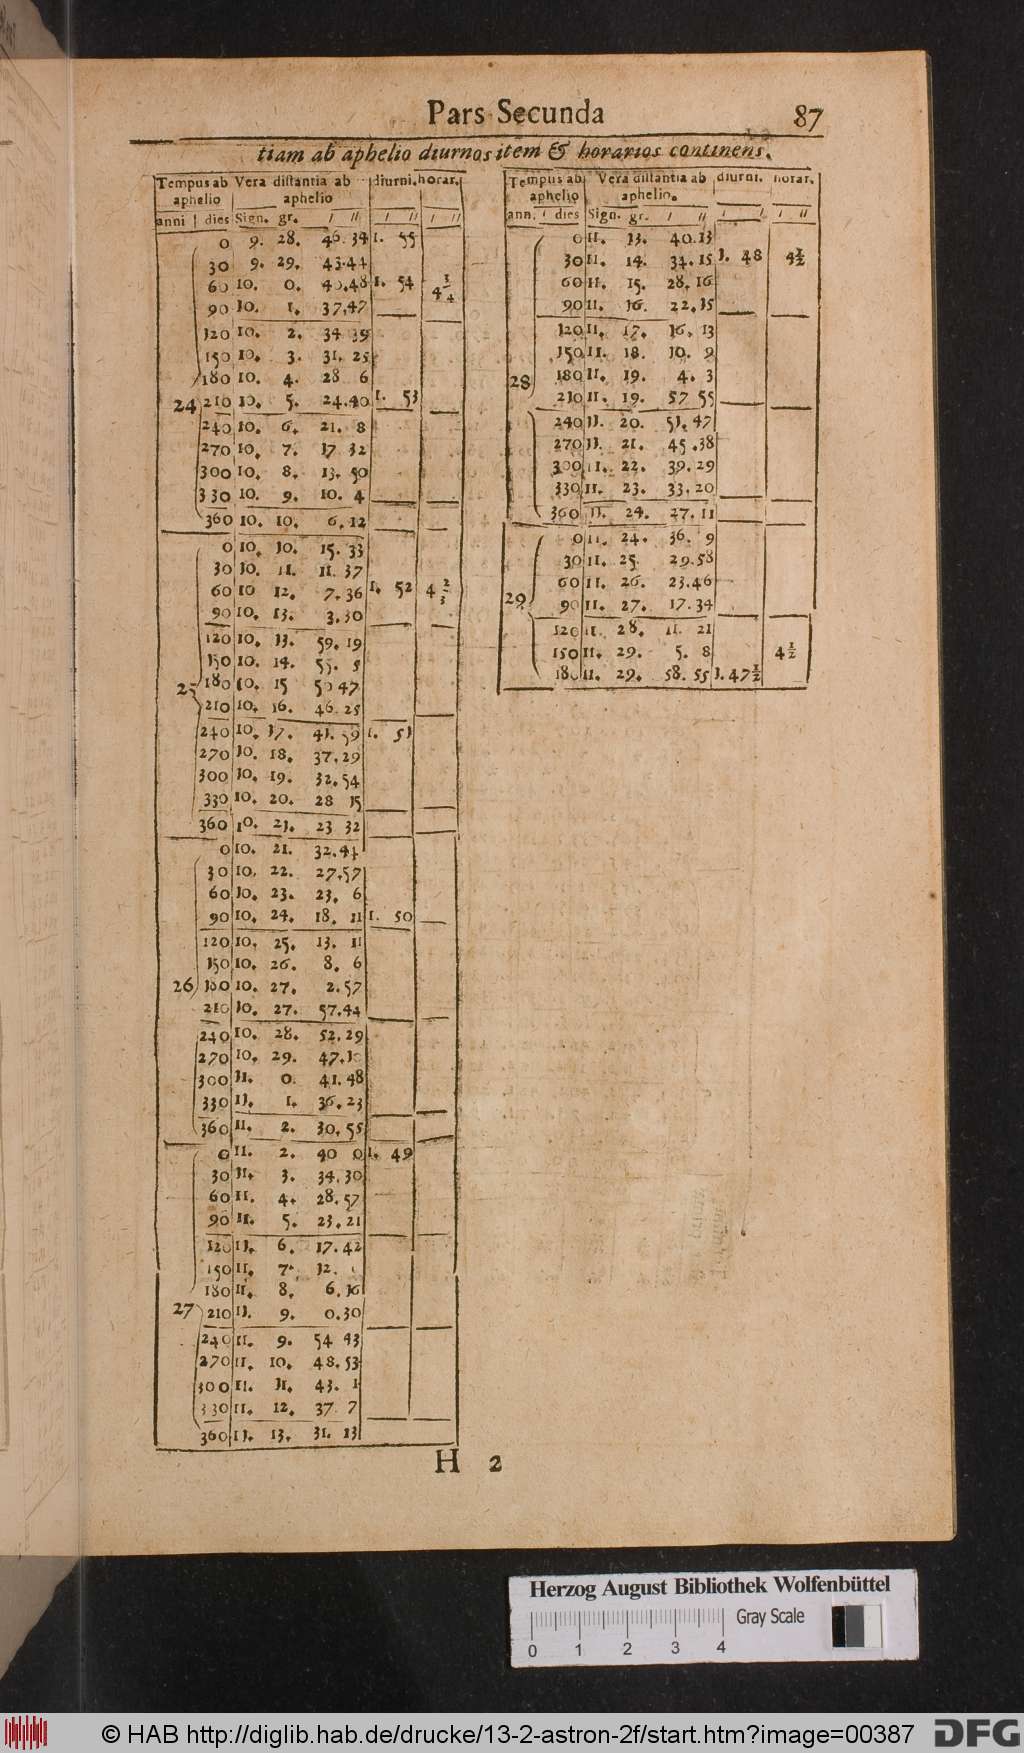 Pars Secunda 87
tiam ab aphelio diurnos item & horarios continens.
Tempus ab Vera distantia ab diurni. horar.
aphelio aphelio
anni dies Sign. gr. ı ıı ı ıı ı ıı
0 9. 28. 46. 34 1. 55
30 9. 29. 43.44
60 10. 0. 40.48 1. 54 4 3/4
90 10. 1. 37.47
120 10. 2. 34 39
150 10. 3. 31. 25
180 10. 4. 28 6
24 210 10. 5. 24.40 1. 53
240 10. 6. 21. 8
270 10. 7. 17 32
300 10. 8. 13. 50
330 10. 9. 10. 4
360 10. 10. 6.12
0 10. 10. 15. 33
30 10. 11. 11. 37
60 10 12. 7.36 1. 52 4 2/3
90 10. 13. 3.30
120 10. 13. 59. 19
150 10. 14. 55. 5
25 180 10. 15 50 47
210 10. 16. 46.25
240 10. 17. 41. 59 1. 51
270 10. 18. 37.29
300 10. 19. 32.54
330 10. 20. 28 15
360 10. 21. 23 32
0 10. 21. 32.44
30 10. 22. 27.57
60 10. 23. 23. 6
90 10. 24. 18. 11 1. 50
120 10. 25. 13. 11
150 10. 26. 8. 6
26 180 10. 27. 2.57
210 10. 27. 57.44
240 10. 28. 52.29
270 10. 29. 47.10
300 11. 0. 41.48
330 11. 1. 36.23
360 11. 2. 30.55
0 11. 2. 40 0 1. 49
30 11. 3. 34.30
60 11. 4. 28.57
90 11. 5. 23.21
120 11. 6. 17.42
150 11. 7. 12.
180 11. 8. 6.16
27 210 11. 9. 0.30
240 11. 9. 54 43
270 11. 10. 48.53
300 11. 11. 43. 1
330 11. 12. 37 7
360 11. 13. 31. 13
Tempus ab Vera distantia ab diurni. horar.
aphelio aphelio.
ann. dies Sign. gr. ı ıı ı ıı ı ıı
0 11. 13. 40.13
30 11. 14. 34.15 1. 48 4 1/2
60 11. 15. 28.16
90 11. 16. 22.15
120 11. 17. 16. 13
150 11. 18. 10. 9
28 180 11. 19. 4. 3
210 11. 19. 57 55
240 11. 20. 51.47
270 11. 21. 45.38
300 11. 22. 39.29
330 11. 23. 33.20
360 11. 24. 27.11
0 11. 24. 36. 9
30 11. 25. 29.58
60 11. 26. 23.46
29 90 11. 27. 17.34
120 11. 28. 11. 21
150 11. 29. 5. 8 4 1/2
180 11. 29. 58. 55 1. 47 1/2
H 2
Herzog August Bibliothek Wolfenbüttel
Gray Scale
0 1 2 3 4
© HAB http://diglib.hab.de/drucke/13-2-astron-2f/start.htm?image=00387 DFG